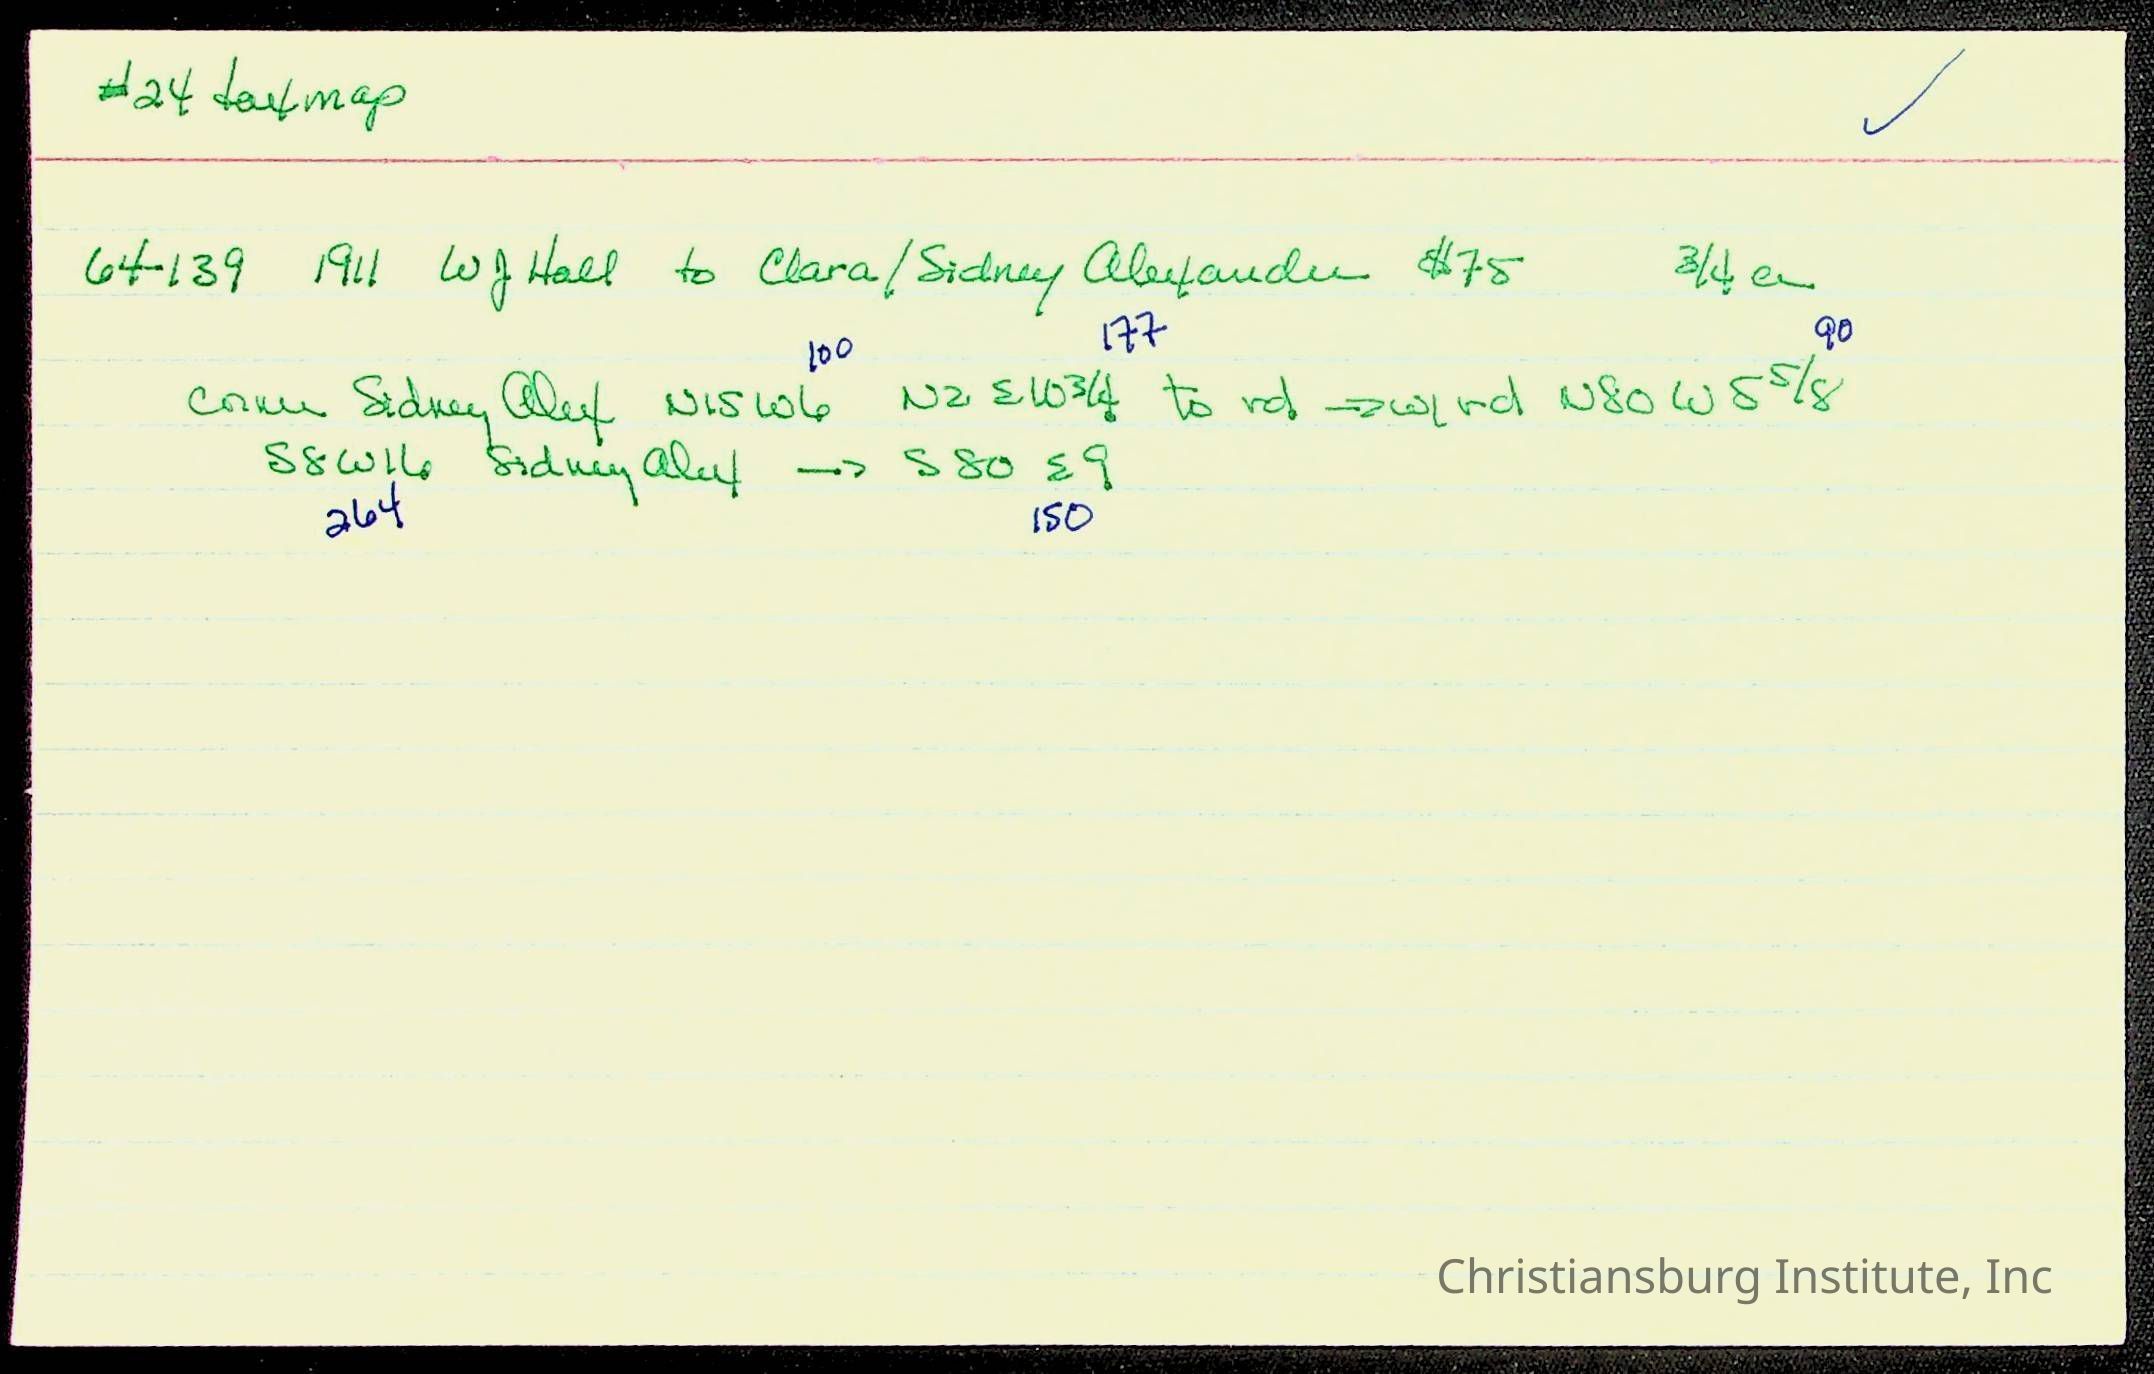 #24 taxmap ✓
64-139 1911 WJ Hall to Clara/Sidney Alexander $75 3/4 ac
100 177 90
corner Sidney Alex N15W6 N2 E10 3/4 to rd → w/ rd N80 W 5 5/8
S8W16 Sidney Alex → S80 E9
264 150
Christiansburg Institute, Inc